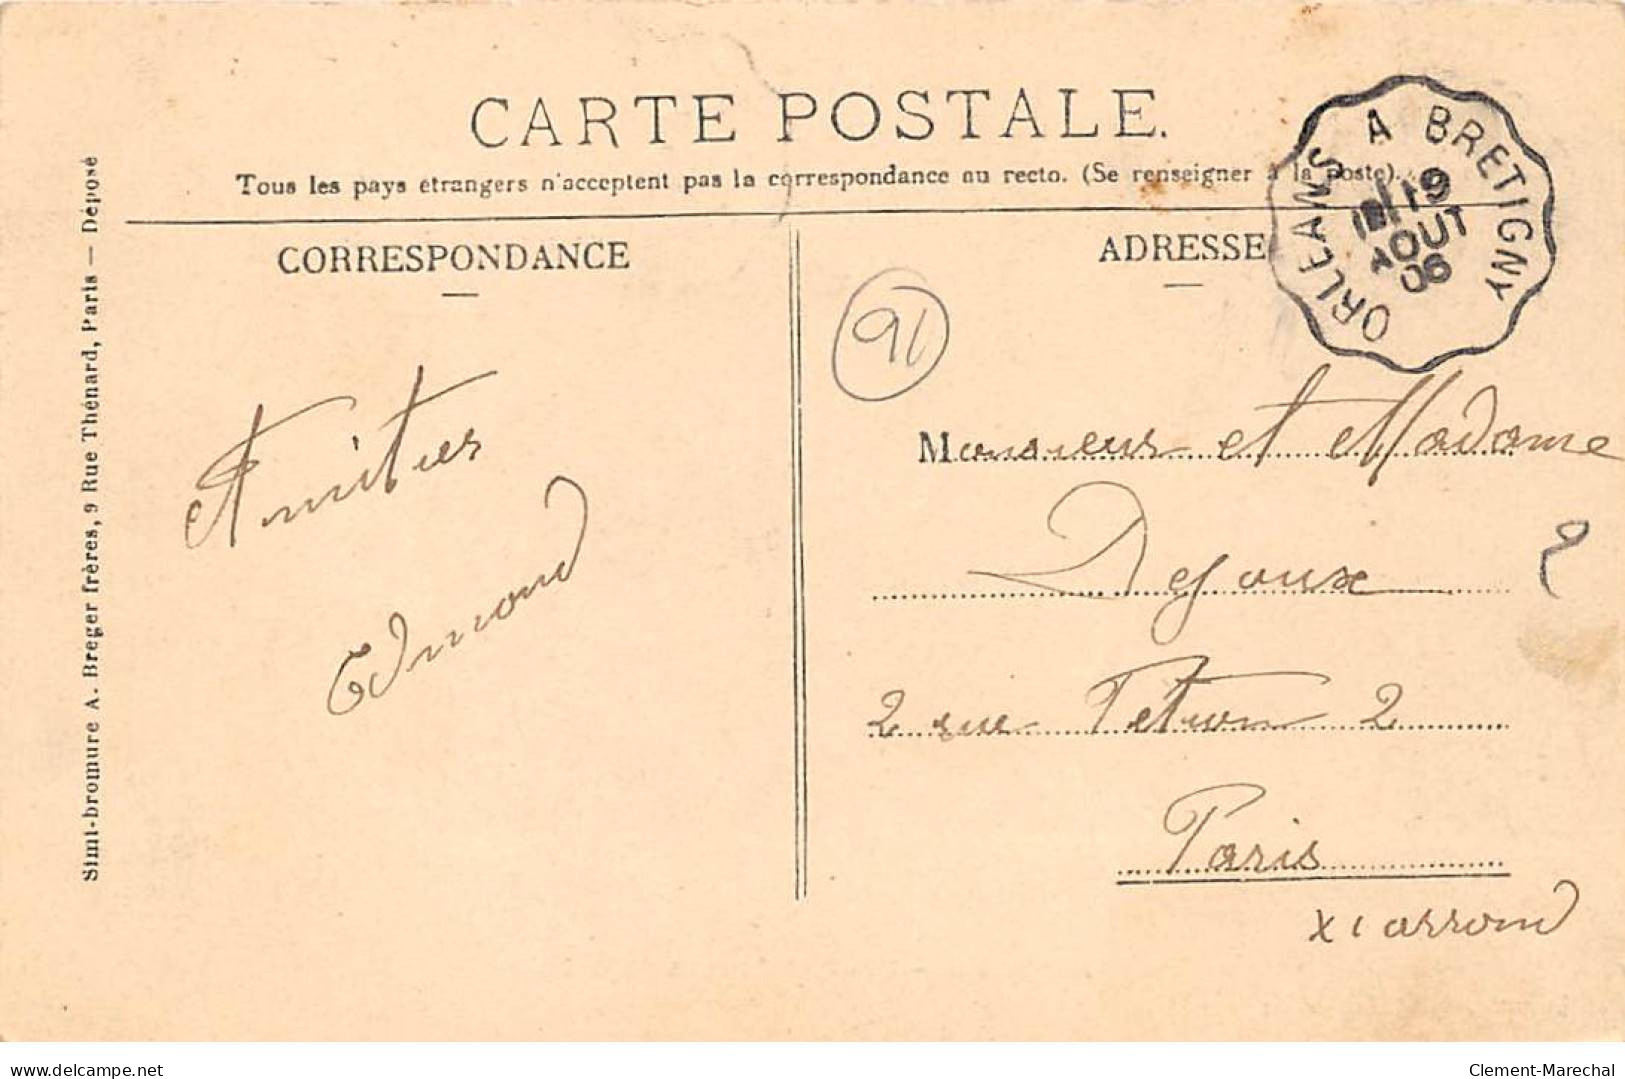 CARTE POSTALE.
Tous les pays étrangers n'acceptent pas la correspondance au recto. (Se renseigner à la poste).
ORLEANS A BRETIGNY
19
AOUT
06
CORRESPONDANCE
ADRESSE
91
Amitiés
Edmond
Monsieur et Madame
Dejoux
2 rue Pétion 2
Paris
XI arrond
Simi-bromure A. Breger frères, 9 Rue Thénard, Paris — Déposé
delcampe.net
Clement-Marechal